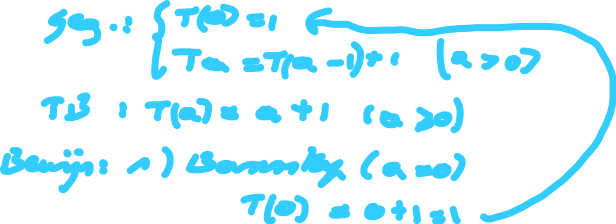 geg.: { T(0) = 1
Ta = T(a - 1) + 1 (a > 0)
TB : T(a) = a + 1 (a ≥ 0)
Bewijs: 1) Basisstap (a = 0)
T(0) = 0 + 1 = 1